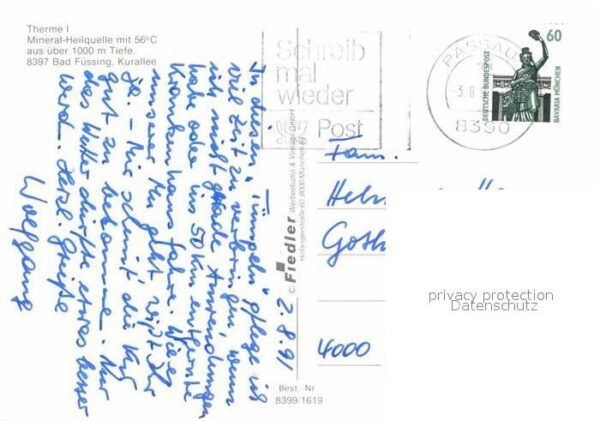 Therme I
Mineral-Heilquelle mit 56°C
aus über 1000 m Tiefe.
8397 Bad Füssing, Kurallee
Schreib
mal
wieder
Post
PASSAU
8390
60
DEUTSCHE BUNDESPOST
BAVARIA MÜNCHEN
2.8.91
In diesen "Tümpeln" pflege ich
viel Zeit zu verbringen, wenn
ich nicht gerade Anwendungen
habe oder ins 50 km entfernte
Krankenhaus fahre. Wie es
unserer Mu geht wißt Ihr
ja. - Mir scheint die Kur
gut zu bekommen. Nur
das Wetter dürfte etwas besser
werden. Herzl. Grüße
Wolfgang
© Fiedler, Werbestudio & Verlag GmbH
8000 München
Best. Nr
8399/1619
Fam.
Goth
4000
privacy protection
Datenschutz